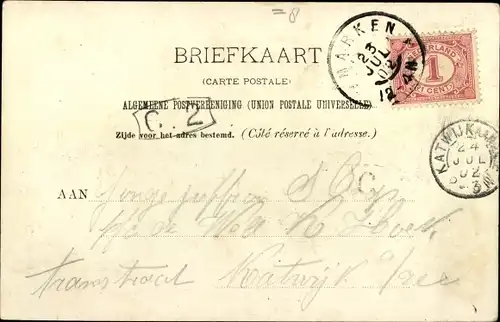 =8
BRIEFKAART
(CARTE POSTALE)
ALGEMEENE POSTVEREENIGING (UNION POSTALE UNIVERSELLE)
Zijde voor het adres bestemd. (Côté réservé à l'adresse.)
MARKEN
23
JUL
02
12-4N
NEDERLAND
1
CENT
C. 2
KATWIJK AAN ZEE
24
JUL
02
AAN Jonge juffrouw
p/c de
Katwijk a/zee